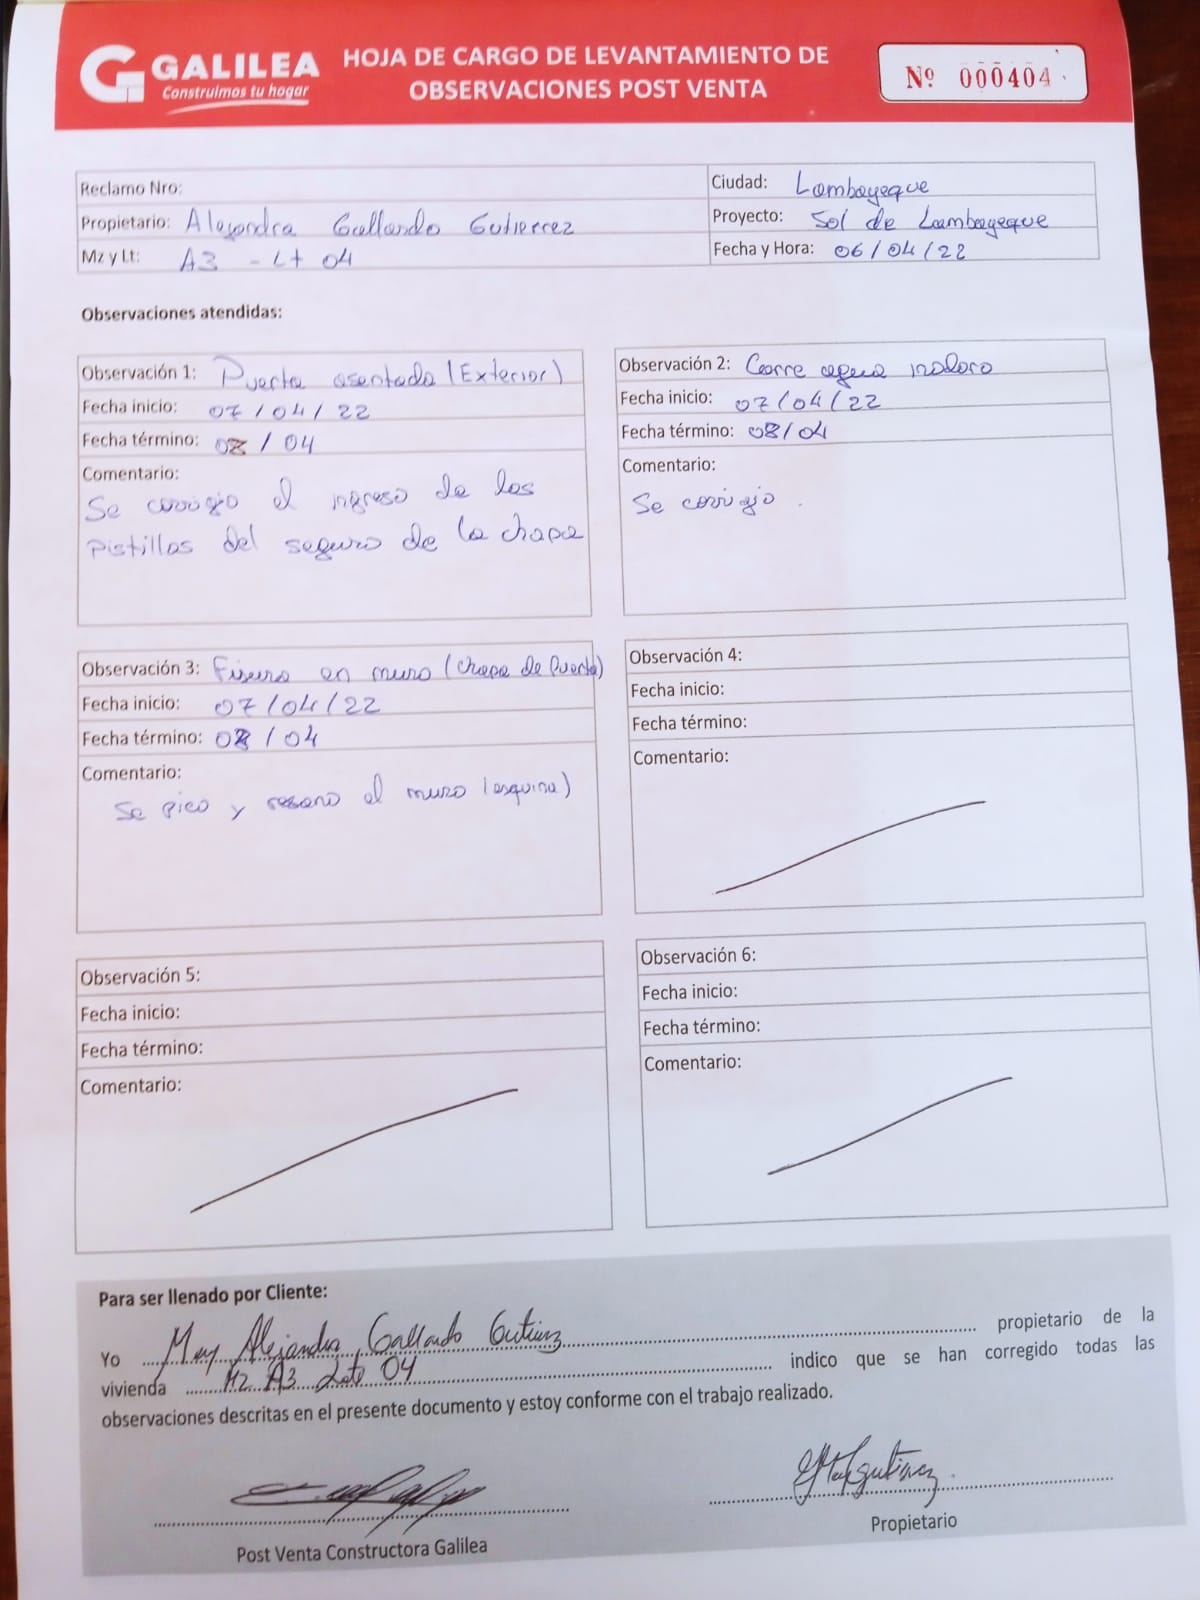 GALILEA
Construimos tu hogar
HOJA DE CARGO DE LEVANTAMIENTO DE
OBSERVACIONES POST VENTA
Nº 000404
Reclamo Nro:
Propietario: Alejandra Gallardo Gutierrez
Mz y Lt: A3 - Lt 04
Ciudad: Lambayeque
Proyecto: Sol de Lambayeque
Fecha y Hora: 06/04/22
Observaciones atendidas:
Observación 1: Puerta asentada (Exterior)
Fecha inicio: 07/04/22
Fecha término: 08/04
Comentario:
Se corrigio el ingreso de los
pistillos del seguro de la chapa
Observación 2: Corre agua inodoro
Fecha inicio: 07/04/22
Fecha término: 08/04
Comentario:
Se corrigio.
Observación 3: Fisura en muro (chapa de Puerta)
Fecha inicio: 07/04/22
Fecha término: 08/04
Comentario:
Se pico y resano el muro (esquina)
Observación 4:
Fecha inicio:
Fecha término:
Comentario:
Observación 5:
Fecha inicio:
Fecha término:
Comentario:
Observación 6:
Fecha inicio:
Fecha término:
Comentario:
Para ser llenado por Cliente:
Yo Mey Alejandra Gallardo Gutierrez propietario de la
vivienda Mz A3 Lote 04 indico que se han corregido todas las
observaciones descritas en el presente documento y estoy conforme con el trabajo realizado.
Post Venta Constructora Galilea
Propietario